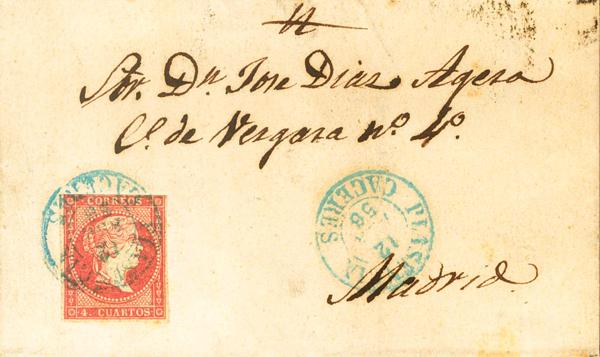 Sor. Dn. Jose Diaz Agero
Ce. de Vergara nº. 4º.
CORREOS
4. CUARTOS
CACERES
12
58
Madrid